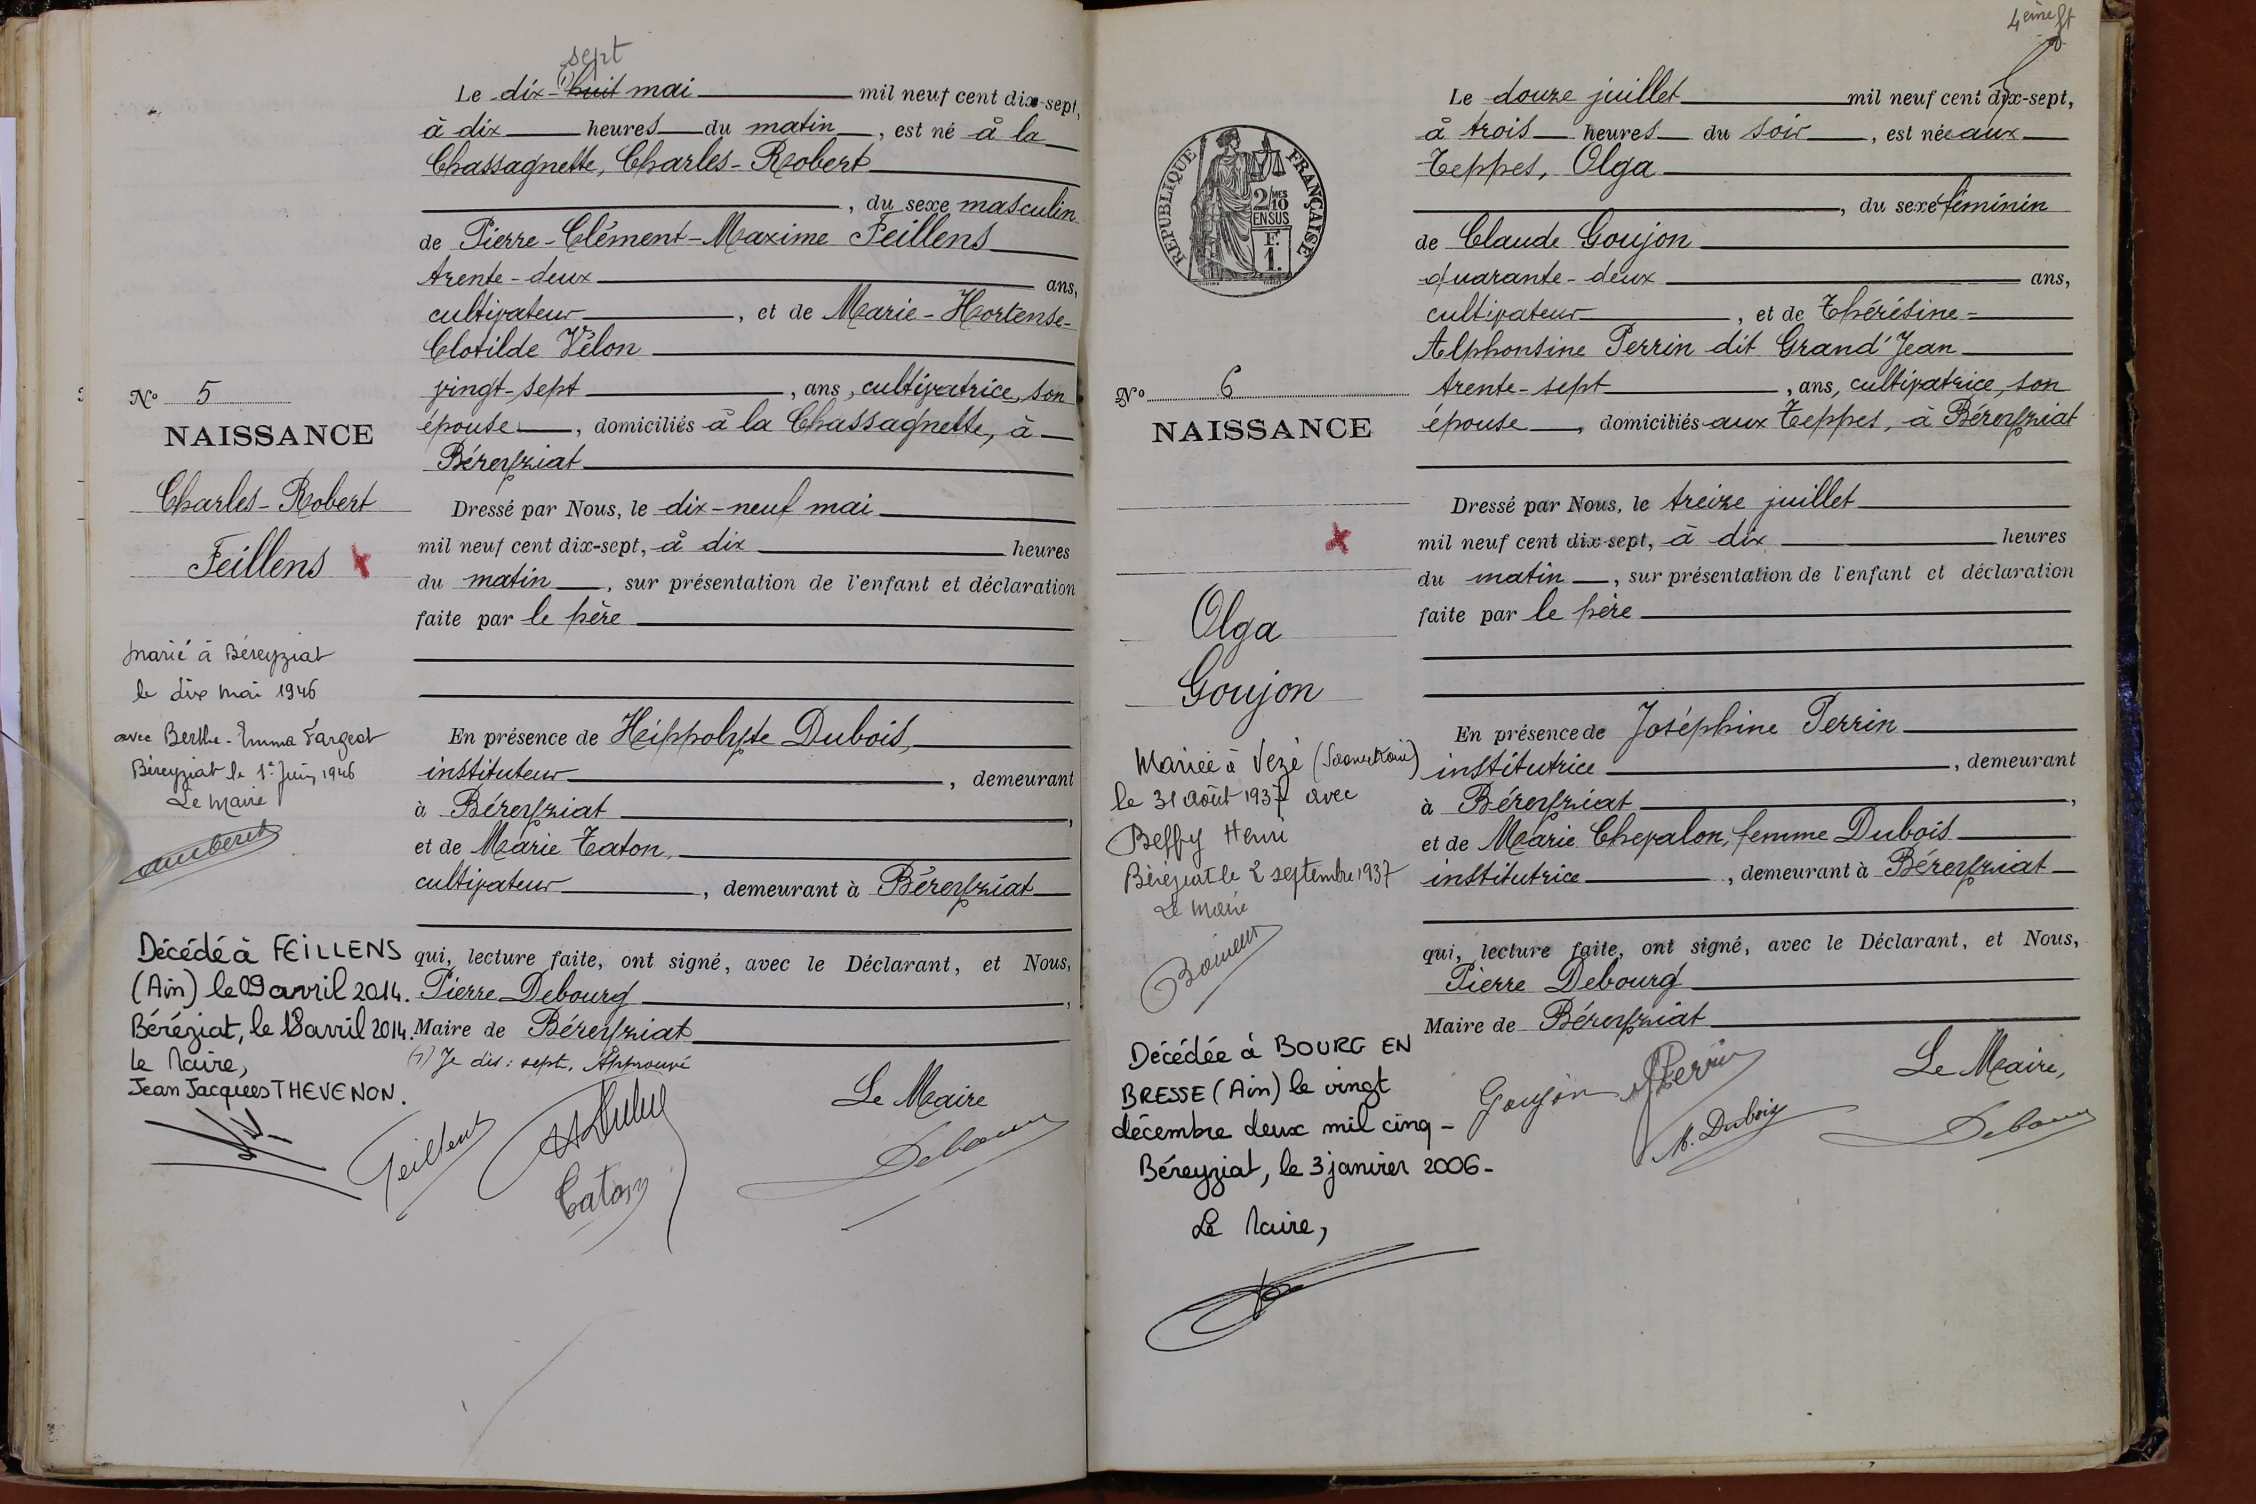 sept
Le dix-(1) huit mai mil neuf cent dix-sept,
à dix heures du matin, est né à la
Chassagnette, Charles-Robert
, du sexe masculin
de Pierre-Clément-Maxime Feillens
trente-deux ans,
cultivateur, et de Marie-Hortense-
Clotilde Vélon
vingt-sept, ans, cultivatrice, son
épouse, domiciliés à la Chassagnette, à
Béreyziat
Dressé par Nous, le dix-neuf mai
mil neuf cent dix-sept, à dix heures
du matin, sur présentation de l'enfant et déclaration
faite par le père
En présence de Hippolyte Dubois,
instituteur, demeurant
à Béreyziat,
et de Marie Taton,
cultivateur, demeurant à Béreyziat
qui, lecture faite, ont signé, avec le Déclarant, et Nous,
Pierre Debourg,
Maire de Béreyziat
(1) Je dis: sept. Approuvé
Le Maire
Feillens
Taton
N° 5
NAISSANCE
Charles-Robert
Feillens
Marié à Béreyziat
le dix mai 1946
avec Berthe-Emma Fargeot
Béreyziat le 1er Juin 1946
Le Maire
Décédé à FEILLENS
(Ain) le 09 avril 2014.
Béréziat, le 18 avril 2014.
Le Maire,
Jean Jacques THEVENON.
4ème ft
Le douze juillet mil neuf cent dix-sept,
à trois heures du soir, est née aux
Teppes, Olga
, du sexe féminin
de Claude Goujon
quarante-deux ans,
cultivateur, et de Thérésine-
Alphonsine Perrin dit Grand'Jean
trente-sept, ans, cultivatrice, son
épouse, domiciliés aux Teppes, à Béreyziat
Dressé par Nous, le treize juillet
mil neuf cent dix-sept, à dix heures
du matin, sur présentation de l'enfant et déclaration
faite par le père
En présence de Joséphine Perrin
institutrice, demeurant
à Béreyziat,
et de Marie Chevalon, femme Dubois
institutrice, demeurant à Béreyziat
qui, lecture faite, ont signé, avec le Déclarant, et Nous,
Pierre Debourg
Maire de Béreyziat
Le Maire,
Goujon
Perrin
M. Dubois
RÉPUBLIQUE FRANÇAISE
2/10 MES
EN SUS
F.
1.
N° 6
NAISSANCE
Olga
Goujon
Mariée à
le 31 août 1937 avec
Beffy Henri
Béreziat le 2 septembre 1937
Le Maire
Décédée à BOURG EN
BRESSE (Ain) le vingt
décembre deux mil cinq -
Béreyziat, le 3 janvier 2006 -
Le Maire,